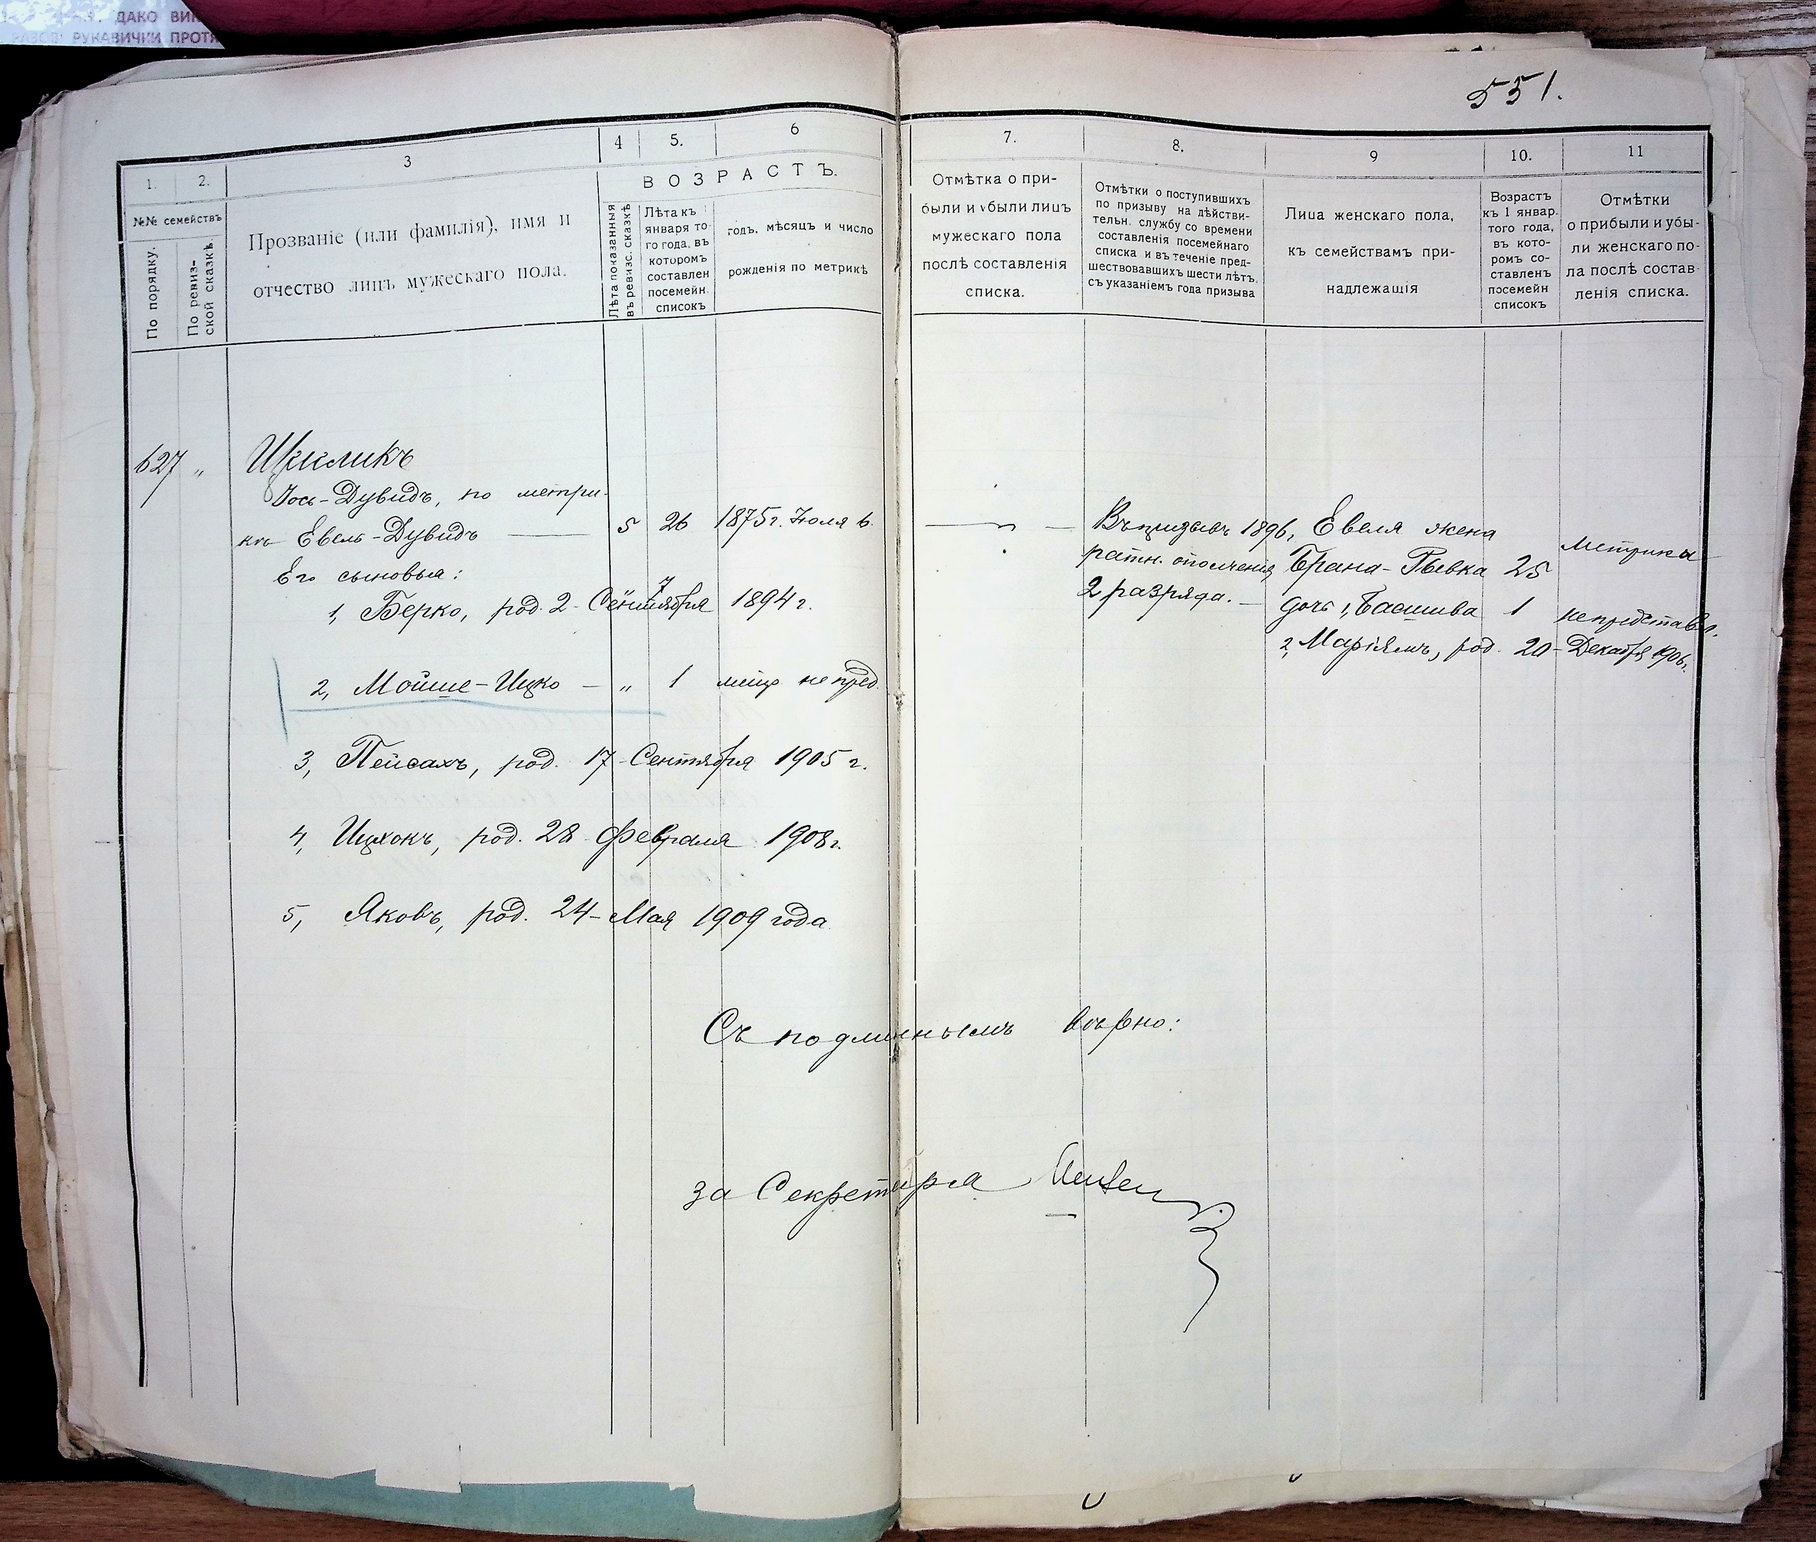 ДАКО ВИК
РУКАВИЧКИ ПРОТЯ
551.
1.
2.
3
4
5.
6
7.
8.
9
10.
11
№№ семействъ
По порядку.
По ревиз-
ской сказкѣ.
Прозваніе (или фамилія), имя и
отчество лицъ мужескаго пола.
ВОЗРАСТЪ.
Лѣта показанныя
въ ревизс. сказкѣ
Лѣта къ 1
января то-
го года, въ
которомъ
составлен
посемейн.
списокъ
годъ, мѣсяцъ и число
рожденія по метрикѣ
Отмѣтка о при-
были и убыли лицъ
мужескаго пола
послѣ составленія
списка.
Отмѣтки о поступившихъ
по призыву на дѣйстви-
тельн. службу со времени
составленія посемейнаго
списка и въ теченіе пред-
шествовавшихъ шести лѣтъ,
съ указаніемъ года призыва
Лица женскаго пола,
къ семействамъ при-
надлежащія
Возрастъ
къ 1 январ.
того года,
въ кото-
ромъ со-
ставленъ
посемейн
списокъ
Отмѣтки
о прибыли и убы-
ли женскаго по-
ла послѣ состав-
ленія списка.
627 "
Іось-Дувидъ, по метри-
кѣ Евель-Дувидъ — 5 26 1875 г. Іюля 6.
Его сыновья:
1, Берко, род. 2 - Сентября 1894 г.
2, Мойше-Ицко — " 1 метр непред.
3, Пейсахъ, род. 17 - Сентября 1905 г.
4, Ицхокъ, род. 28 Февраля 1908 г.
5, Яковъ, род. 24 - Мая 1909 года
Въ призывъ 1896,
ратн. ополченія
2 разряда. —
Евеля жена
Брана-Рывка 25
дочь 1, Басшива 1
2, Маріямъ, род. 20 - Декабря 1906 г.
метрика
непредставл.
Съ подлиннымъ вѣрно:
за Секретаря